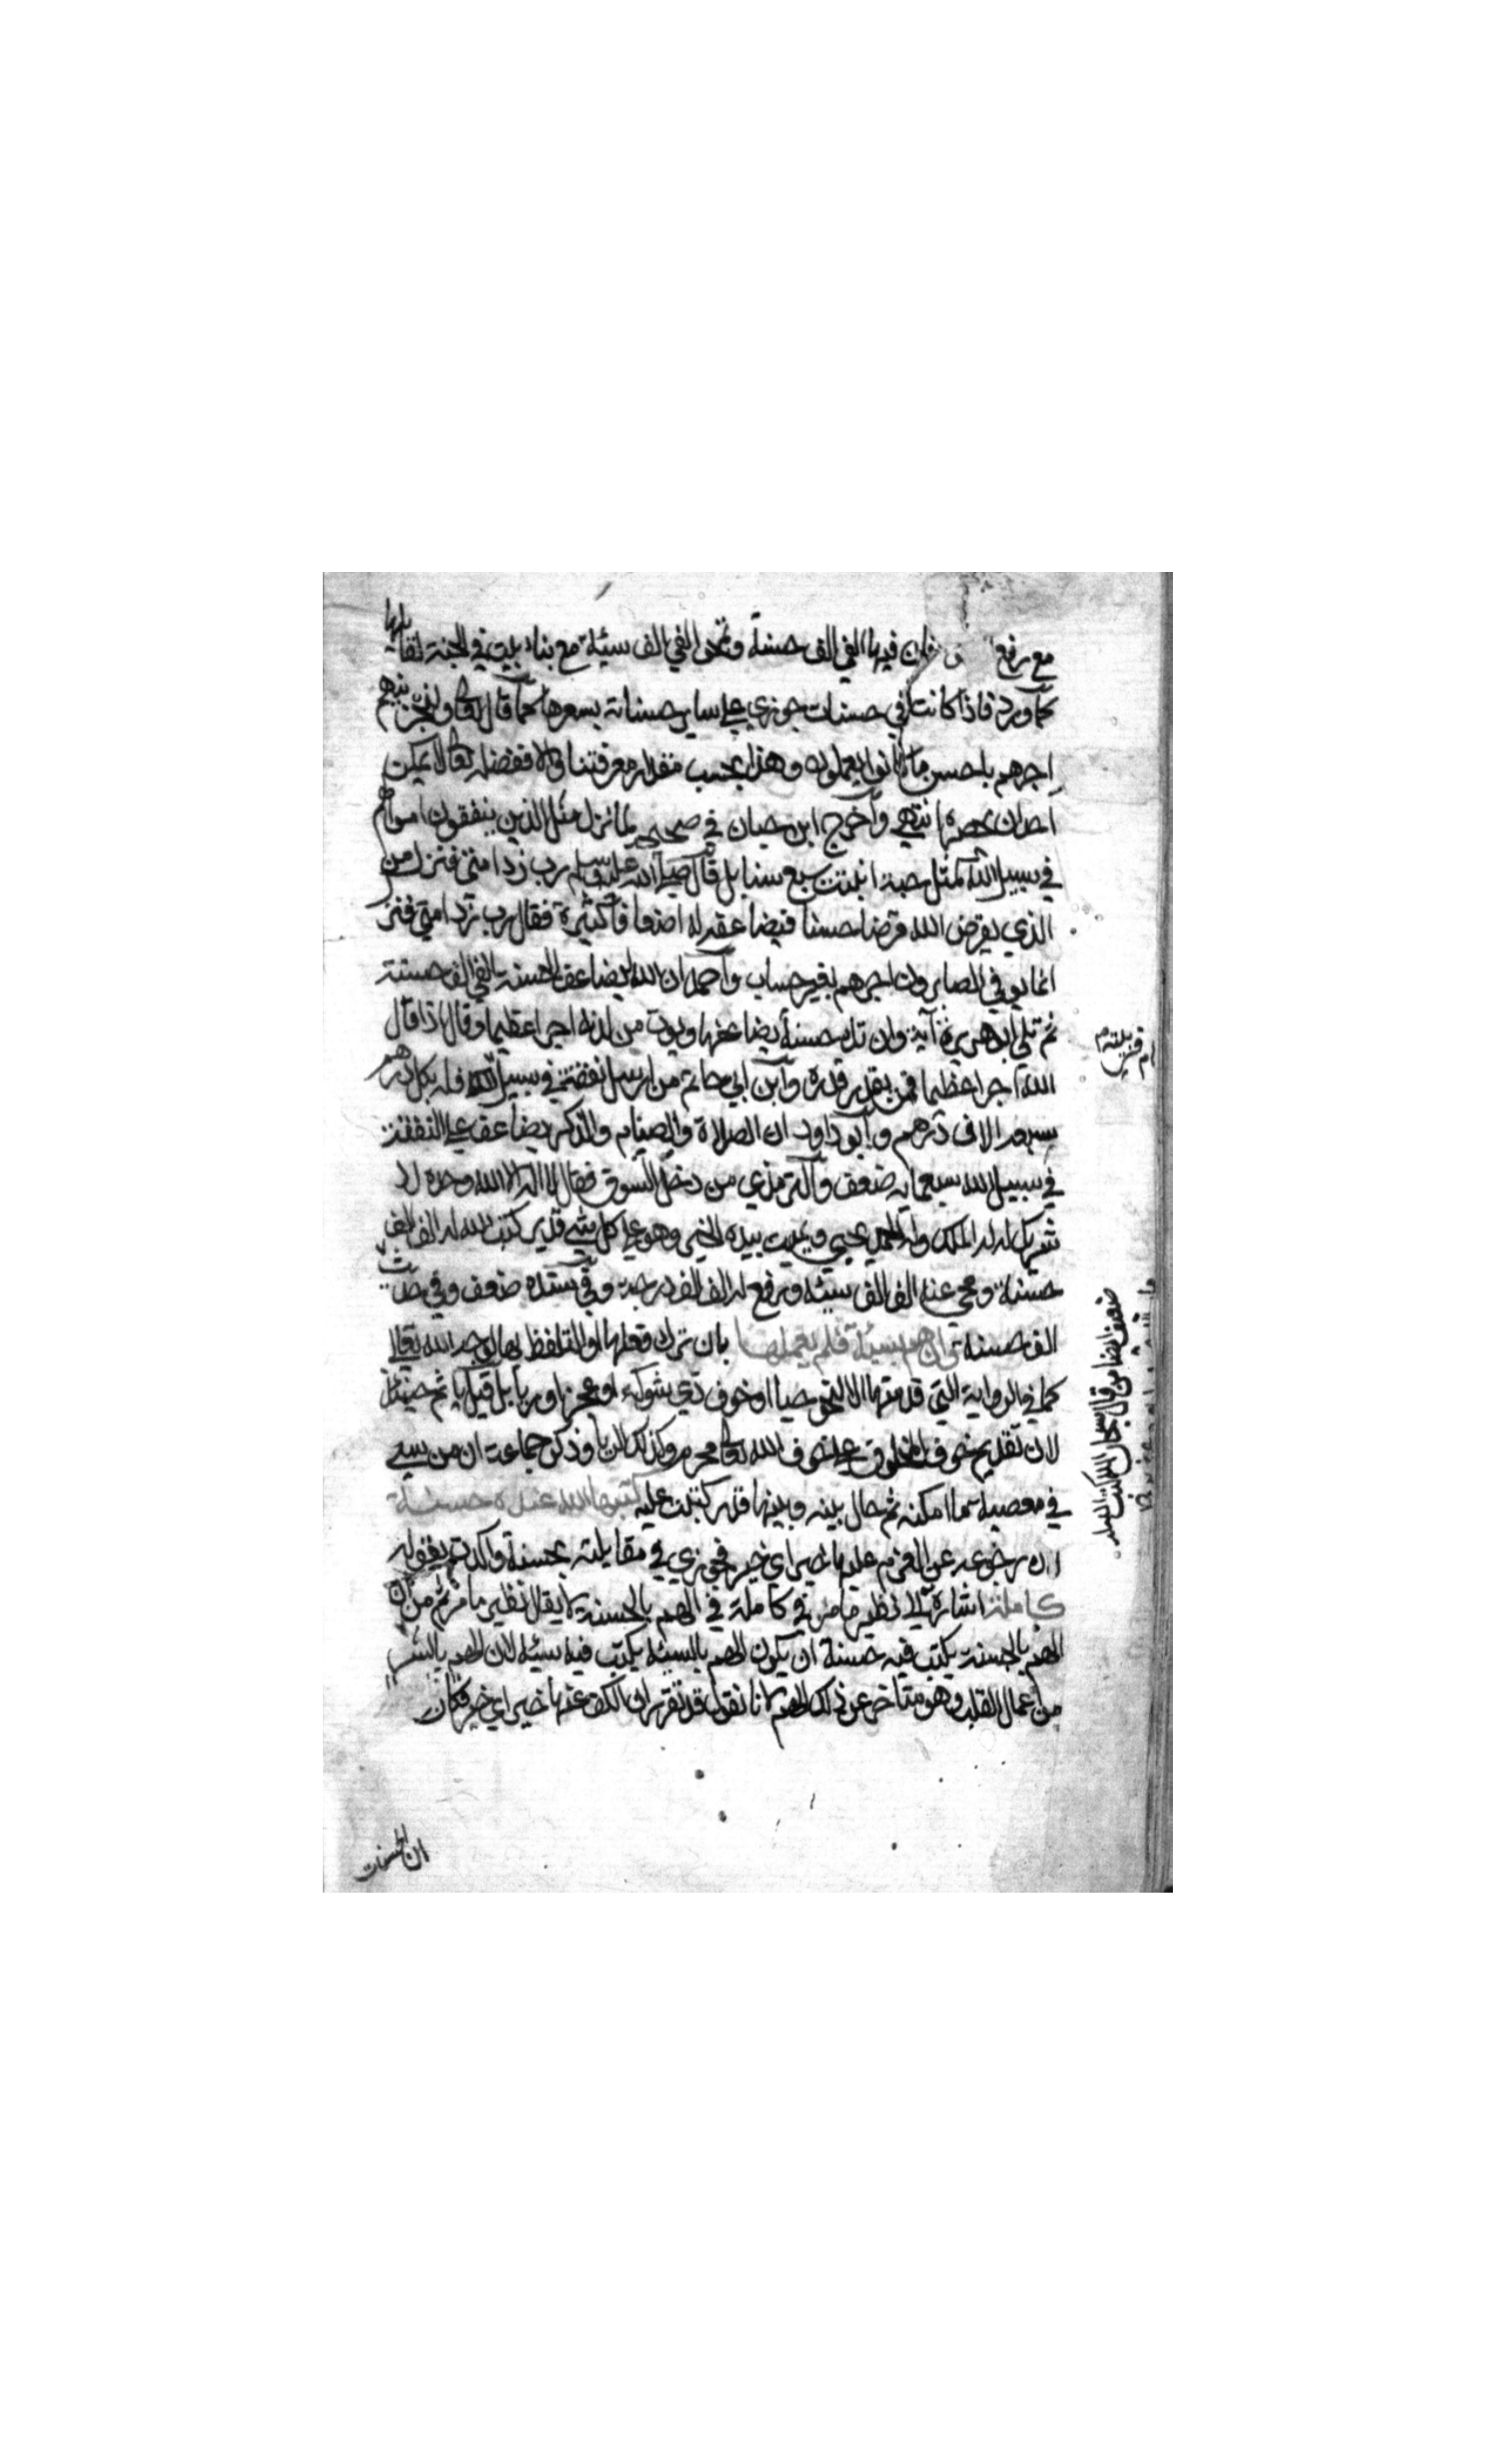 مع رفع فان فيها الفي الف حسنة وتمحى الفي الف سيئة مع بناء بيت في الجنة لقايلها
كما ورد فاذا كانت في حسنات جوزي على ساير حسناته بسعرها كما قال تعالى ولنجزينهم
اجرهم باحسن ما كانوا يعملون وهذا بحسب مقدار معرفتنا والا ففضله تعالى لا يمكن
احدا ان يحصره انتهى وأخرج ابن حبان في صحيحه لما نزل مثل الذين ينفقون اموالهم
في سبيل الله كمثل حبة انبتت سبع سنابل قال صلى الله عليه وسلم رب زد امتي فنزل من
الذي يقرض الله قرضا حسنا فيضاعفه له اضعافا كثيرة فقال رب زد امتي فنزل
انما يوفي الصابرون اجرهم بغير حساب وأحمد ان الله ليضاعف الحسنة بالفي الف حسنة
ثم تلى ابو هريرة آية وان تك حسنة يضاعفها ويوت من لدنه اجرا عظيما وقال اذا قال
الله اجرا عظيما فمن يقدر قدره وابن ابي حاتم من ارسل نفقة في سبيل الله فله بكل درهم
سبعة الاف درهم وابو داود ان الصلاة والصيام والذكر يضاعف على النفقة
في سبيل الله سبعماية ضعف والترمذي من دخل السوق فقال لا اله الا الله وحده لا
شريك له له الملك وله الحمد يحيي ويميت بيده الخير وهو على كل شي قدير كتب الله له الف الف
حسنة ومحي عنه الف الف سيئة ورفع له الف الف درجة وفي سنده ضعف وفي حديث
الف حسنة وان هم بسيئة فلم يعملها بان ترك فعلها او التلفظ بها لوجه الله تعالى
كما في الرواية التي قدمتها لا لنحو حيا او خوف ذي شوكة او عجز او ريا بل قيل ياثم حينئذ
لان تقديم خوف المخلوق على خوف الله تعالى محرم وكذلك الريا وذكر جماعة ان من سعى
في معصية ما امكنه ثم حال بينه وبينها قدر كتبت عليه كتبها الله عنده حسنة
لان رجوعه عن العزم عليها خير اي خير فجوزي في مقابلته بحسنة واكدت بقوله
كاملة اشارة الى نظير ما مر في كاملة في الهم بالحسنة لا يقال نظير ما مر ثم من ان
الهم بالحسنة يكتب فيه حسنة ان يكون الهم بالسيئة يكتب فيه سيئة لان الهم بالشر
من اعمال القلب وهو متاخر عن ذلك الهم لانا نقول قد تقرر ان الكف عنها خير اي خير فكان
ضعف ايضا من قال سبحان الله كتب الله له
ان الحسنات